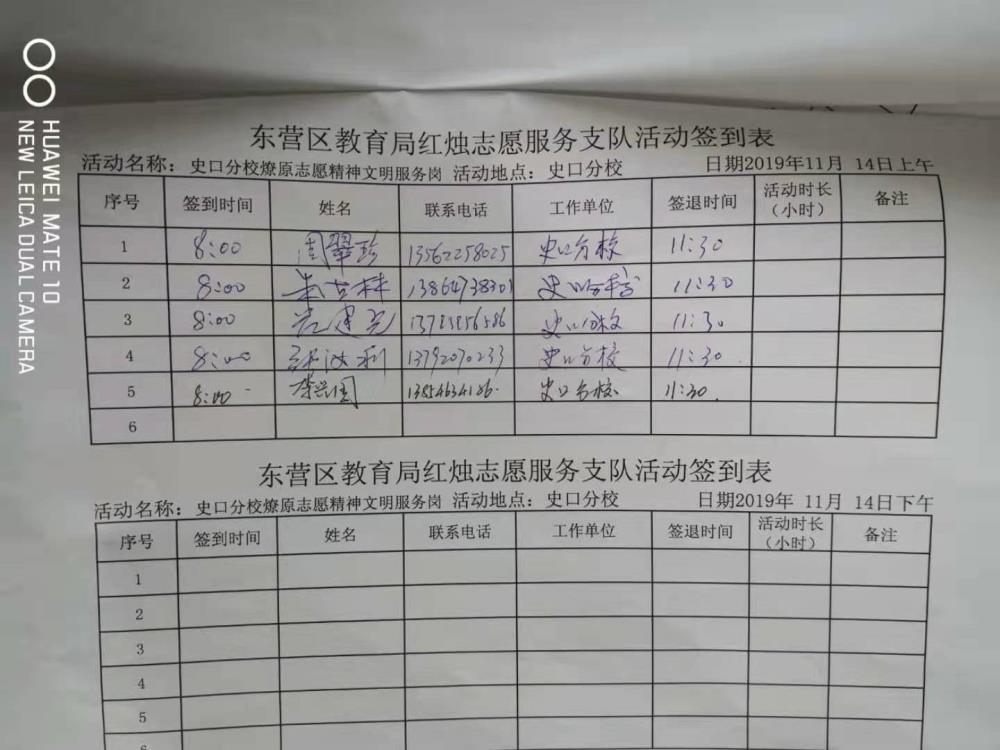 HUAWEI MATE 10
NEW LEICA DUAL CAMERA
东营区教育局红烛志愿服务支队活动签到表
活动名称：史口分校燎原志愿精神文明服务岗 活动地点：史口分校 日期2019年11月 14日上午
序号 签到时间 姓名 联系电话 工作单位 签退时间 活动时长（小时） 备注
1 8:00 周翠珍 13562258025 史口分校 11:30
2 8:00 13864738301 史口分校 11:30
3 8:00 史口分校 11:30
4 8:00 13792070233 史口分校 11:30
5 8:00 李兴国 史口分校 11:30
6
东营区教育局红烛志愿服务支队活动签到表
活动名称：史口分校燎原志愿精神文明服务岗 活动地点：史口分校 日期2019年 11月 14日下午
序号 签到时间 姓名 联系电话 工作单位 签退时间 活动时长（小时） 备注
1
2
3
4
5
6